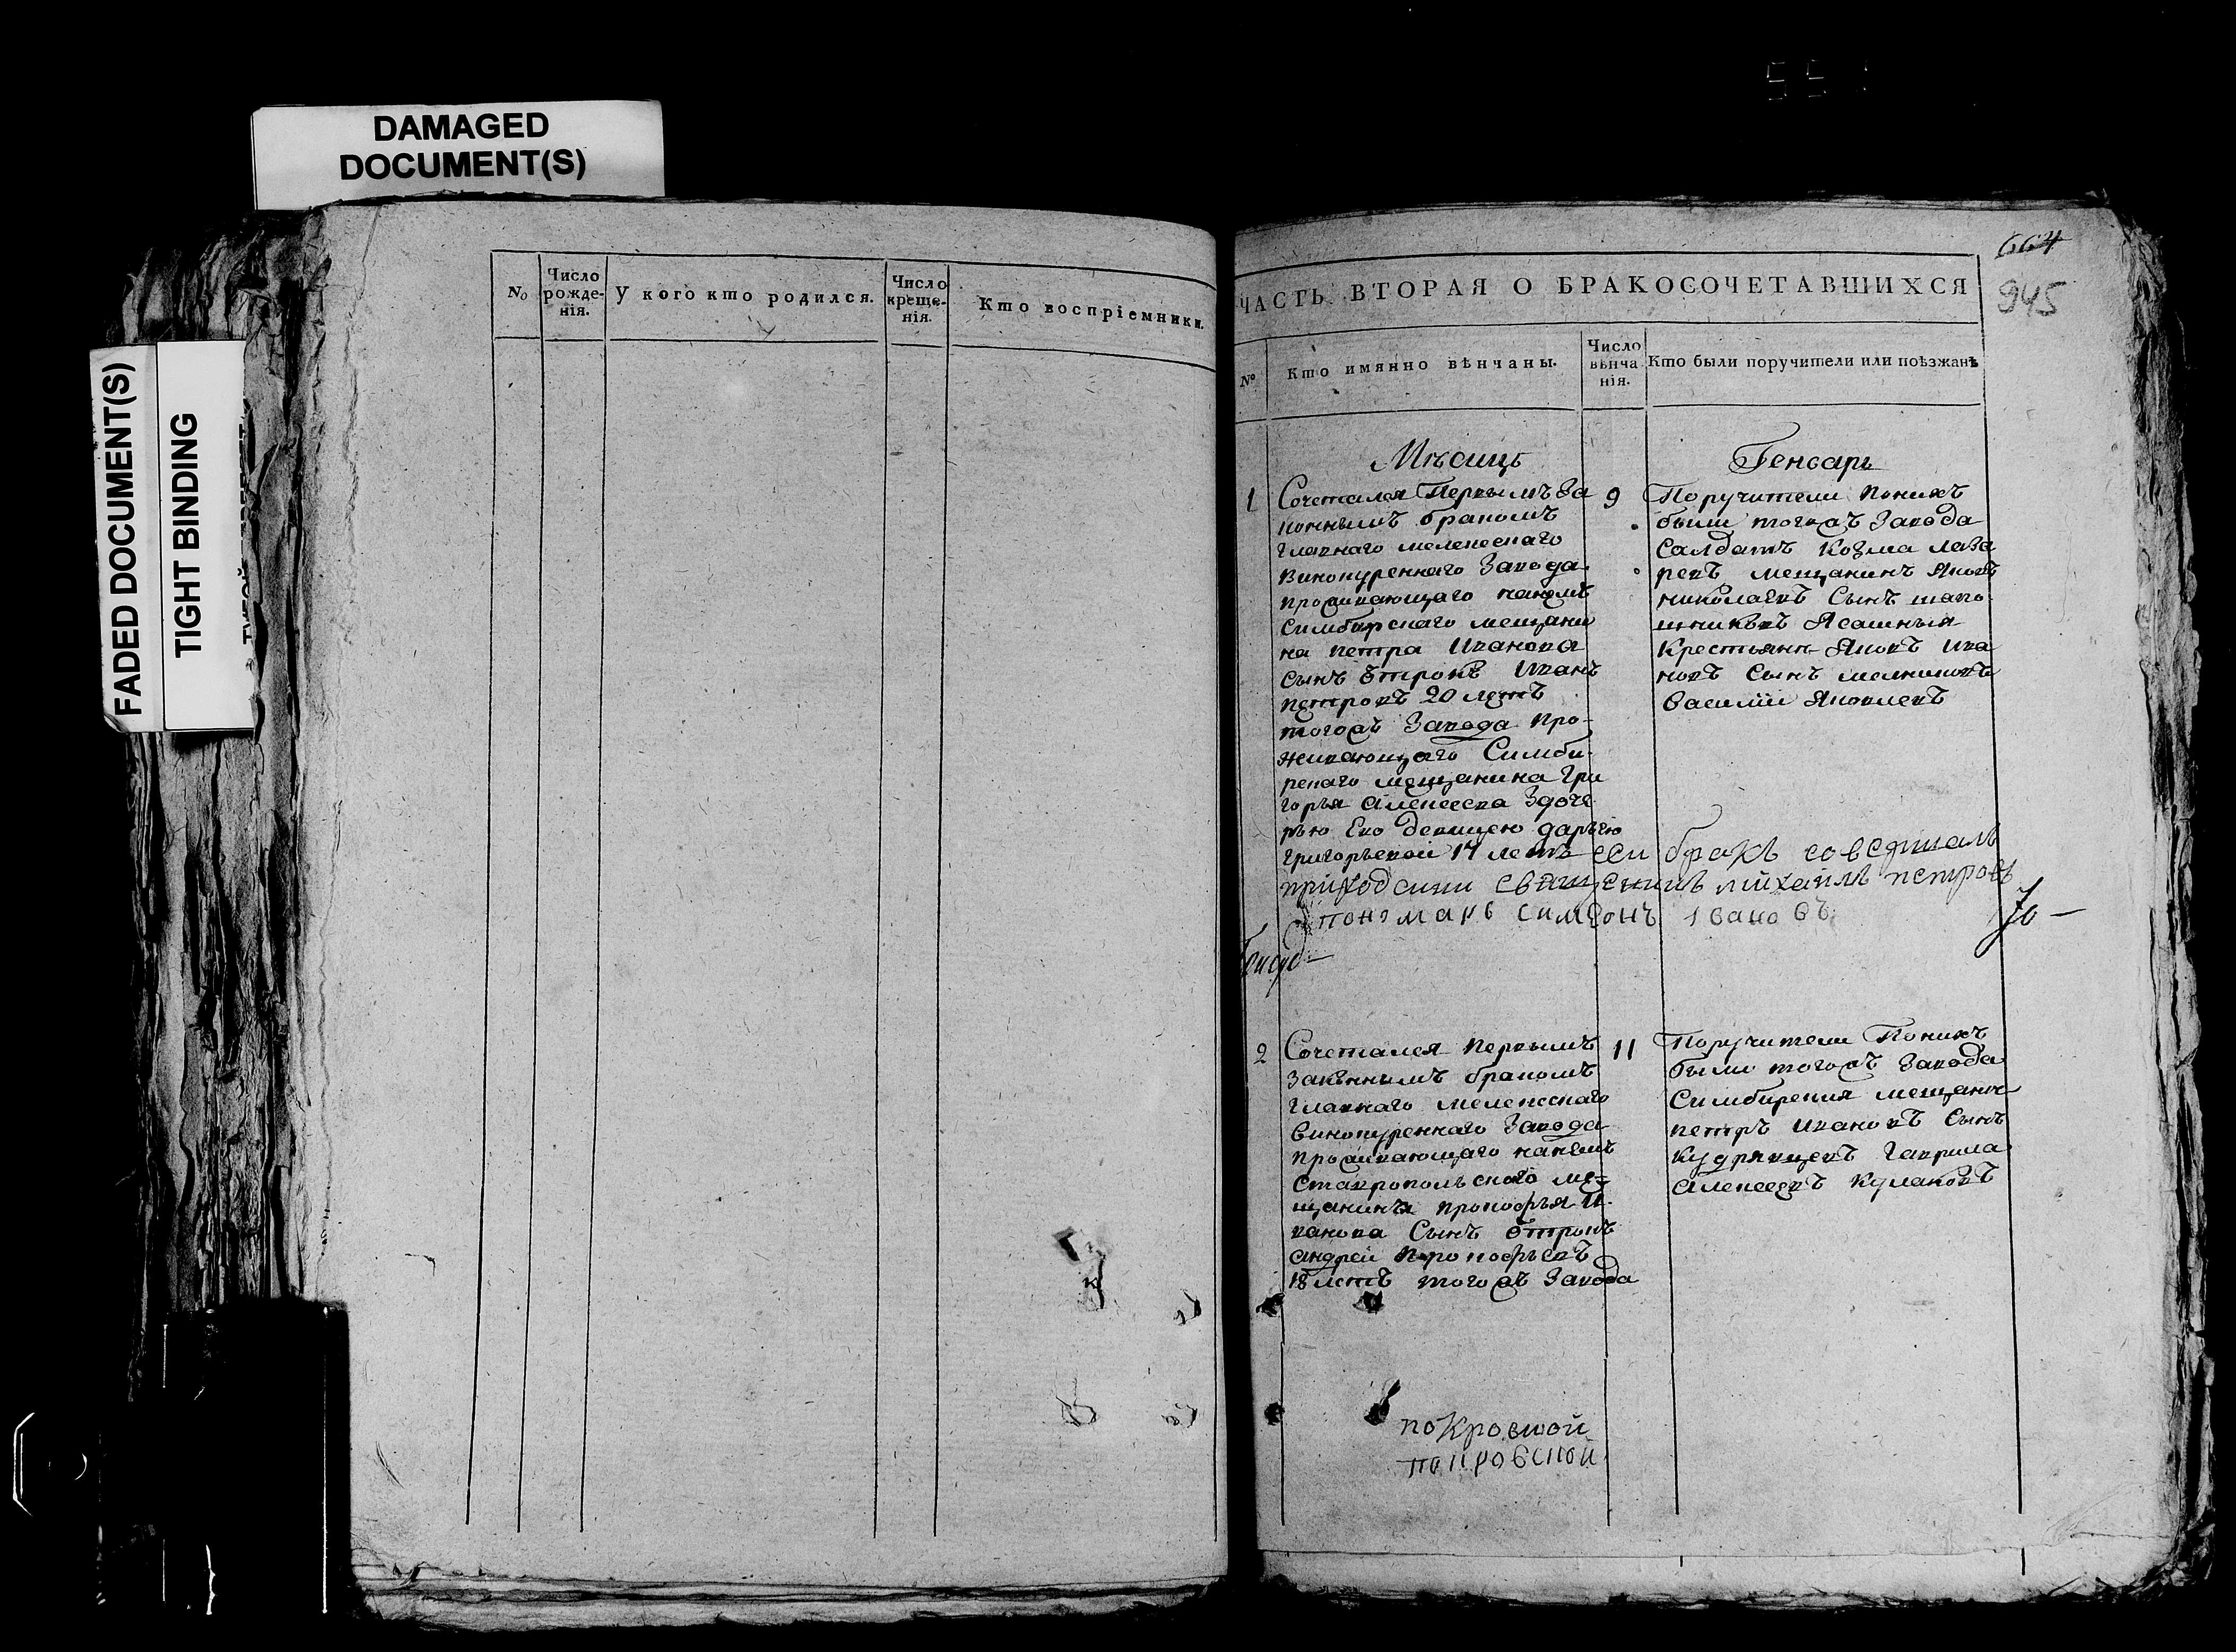 DAMAGED
DOCUMENT(S)
FADED DOCUMENT(S)
TIGHT BINDING
№
Число рожде-нія.
У кого кто родился.
Число креще-нія.
Кто воспріемники.
664
945
ЧАСТЬ ВТОРАЯ О БРАКОСОЧЕТАВШИХСЯ
№
Кто имянно вѣнчаны.
Число вѣнча нія.
Кто были поручители или поѣзжанѣ
Мѣсицъ
Генварь
1
Сочетался Первымъ За
коннымъ бракомъ
главнаго мелекескаго
винокуреннаго Завода
проживающаго наномъ
симбирскаго мещани
на петра Иванова
сынъ отрокъ Иванъ
петровъ 20 летъ
тогожъ Завода про-
живающаго Симби-
рскаго мещанина Гри
горья алексеева Здоче
рью Ево девицею дарьею
григорьевой 17 летъ
9
Поручители поникъ
были тогожъ Завода
салдатъ Козма лаза
ревъ мещанинъ Яковъ
николаевъ Сынъ шапо
шниковъ Ясашныя
Крестьяня Яковъ ива
новъ Сынъ мелниковъ
василіи Яковлевъ
сеи бракъ совершалъ
приходскии священникъ михаилъ петровъ
пономарь симеонъ iвановъ
2
Сочетался первымъ
Законнымъ бракомъ
главнаго мелекескаго
винокуреннаго Завода
проживающаго наномъ
ставропольскаго ме-
щанина прокофья И-
ванова Сынъ отрокъ
андреи прокофьевъ
18 летъ тогожъ Завода
11
Поручители Поникъ
были тогожъ Завода
Симбирския мещаня
петръ ивановъ Сынъ
кудрявцевъ гаврила
алексеевъ кулаковъ
покровшой
покровской